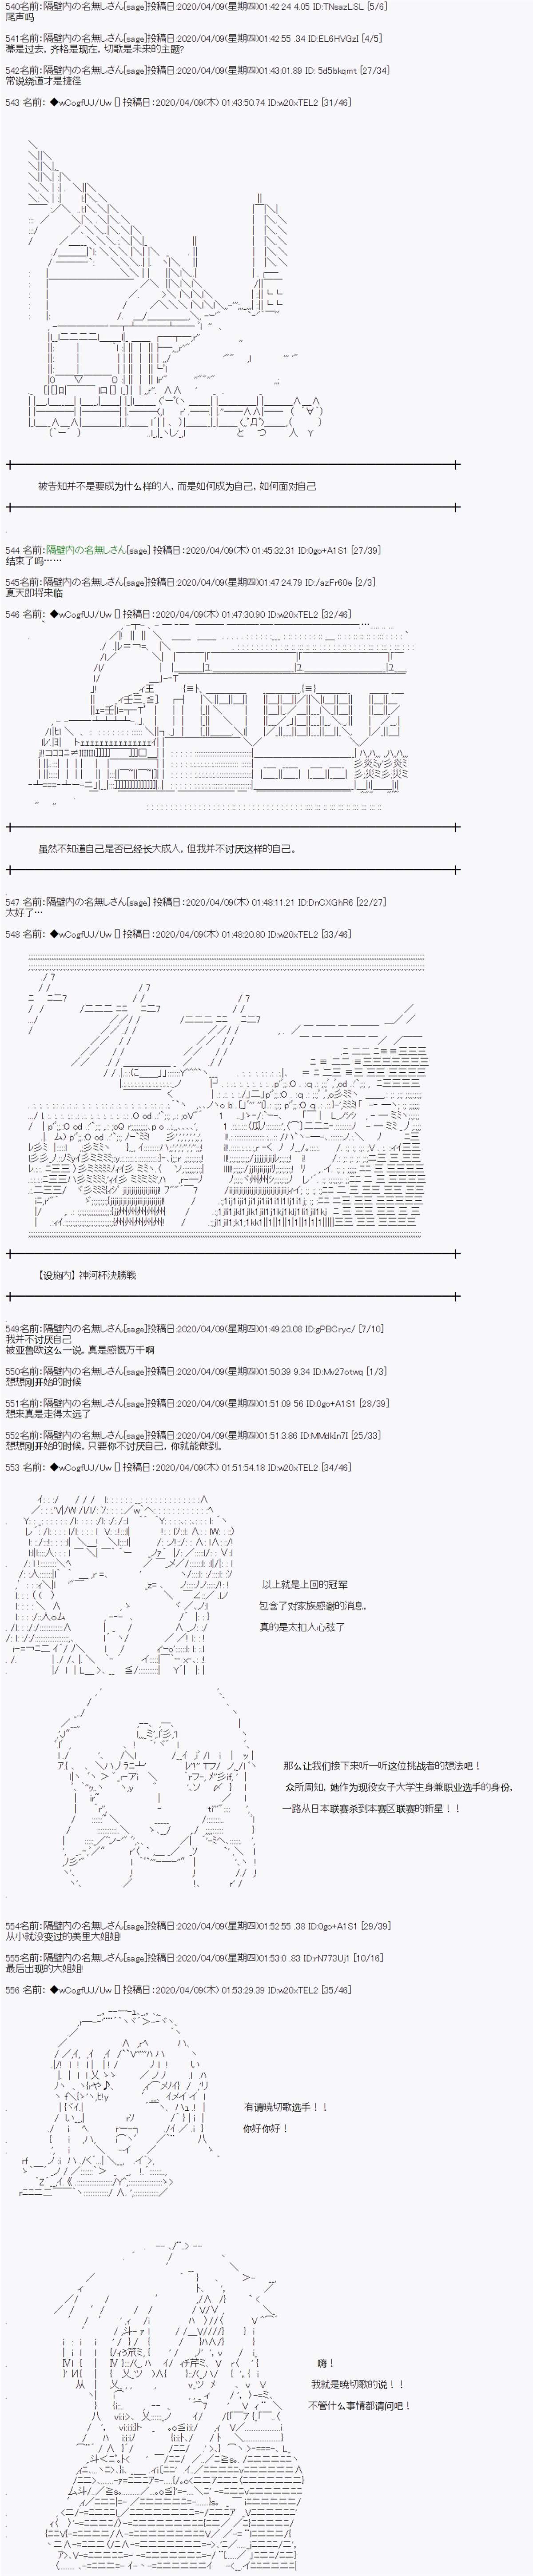 540名前:隔壁内の名無しさん[sage]投稿日:2020/04/09(星期四)01:42:24 4.05 ID:TNsazLSL [5/6]
尾声吗
541名前:隔壁内の名無しさん[sage]投稿日:2020/04/09(星期四)01:42:55 .34 ID:EL6HVGzI [4/5]
蒂是过去, 齐格是现在, 切歌是未来的主题?
542名前:隔壁内の名無しさん[sage]投稿日:2020/04/09(星期四)01:43:01.89 ID: 5d5bkqmt [27/34]
常说绕道才是捷径
543 名前: ◆wCogfUJ/Uw [] 投稿日:2020/04/09(木) 01:43:50.74 ID:w20xTEL2 [31/46]
と つ 人 Y
被告知并不是要成为什么样的人, 而是如何成为自己, 如何面对自己
544 名前:隔壁内の名無しさん[sage] 投稿日:2020/04/09(木) 01:45:32.31 ID:0go+A1S1 [27/39]
结束了吗……
545名前:隔壁内の名無しさん[sage]投稿日:2020/04/09(星期四)01:47:24.79 ID:/azFr60e [2/3]
夏天即将来临
546 名前: ◆wCogfUJ/Uw [] 投稿日:2020/04/09(木) 01:47:30.90 ID:w20xTEL2 [32/46]
虽然不知道自己是否已经长大成人, 但我并不讨厌这样的自己。
547名前:隔壁内の名無しさん[sage]投稿日:2020/04/09(星期四)01:48:11.21 ID:DnCXGhR6 [22/27]
太好了…
548 名前: ◆wCogfUJ/Uw [] 投稿日:2020/04/09(木) 01:48:20.80 ID:w20xTEL2 [33/46]
【设施内】 神河杯决勝戦
549名前:隔壁内の名無しさん[sage]投稿日:2020/04/09(星期四)01:49:23.08 ID:gPBCryc/ [7/10]
我并不讨厌自己
被亚鲁欧这么一说, 真是感慨万千啊
550名前:隔壁内の名無しさん[sage]投稿日:2020/04/09(星期四)01:50:39 9.34 ID:Mv27otwq [1/3]
想想刚开始的时候
551名前:隔壁内の名無しさん[sage]投稿日:2020/04/09(星期四)01:51:09 56 ID:0go+A1S1 [28/39]
想来真是走得太远了
552名前:隔壁内の名無しさん[sage]投稿日:2020/04/09(星期四)01:51:3.86 ID:MMdkIn7I [25/33]
想想刚开始的时候, 只要你不讨厌自己, 你就能做到。
553 名前: ◆wCogfUJ/Uw [] 投稿日:2020/04/09(木) 01:51:54.18 ID:w20xTEL2 [34/46]
以上就是上回的冠军
包含了对家族感谢的消息。
真的是太扣人心弦了
那么让我们接下来听一听这位挑战者的想法吧!
众所周知, 她作为现役女子大学生身兼职业选手的身份,
一路从日本联赛杀到本赛区联赛的新星!!
554名前:隔壁内の名無しさん[sage]投稿日:2020/04/09(星期四)01:52:55 .38 ID:0go+A1S1 [29/39]
从小就没变过的美里大姐姐!
555名前:隔壁内の名無しさん[sage]投稿日:2020/04/09(星期四)01:53:0 .83 ID:rN773Uj1 [10/16]
最后出现的大姐姐!
556 名前: ◆wCogfUJ/Uw [] 投稿日:2020/04/09(木) 01:53:29.39 ID:w20xTEL2 [35/46]
有请暁切歌选手!!
你好你好!
嗨!
我就是暁切歌的说!!
不管什么事情都请问吧!